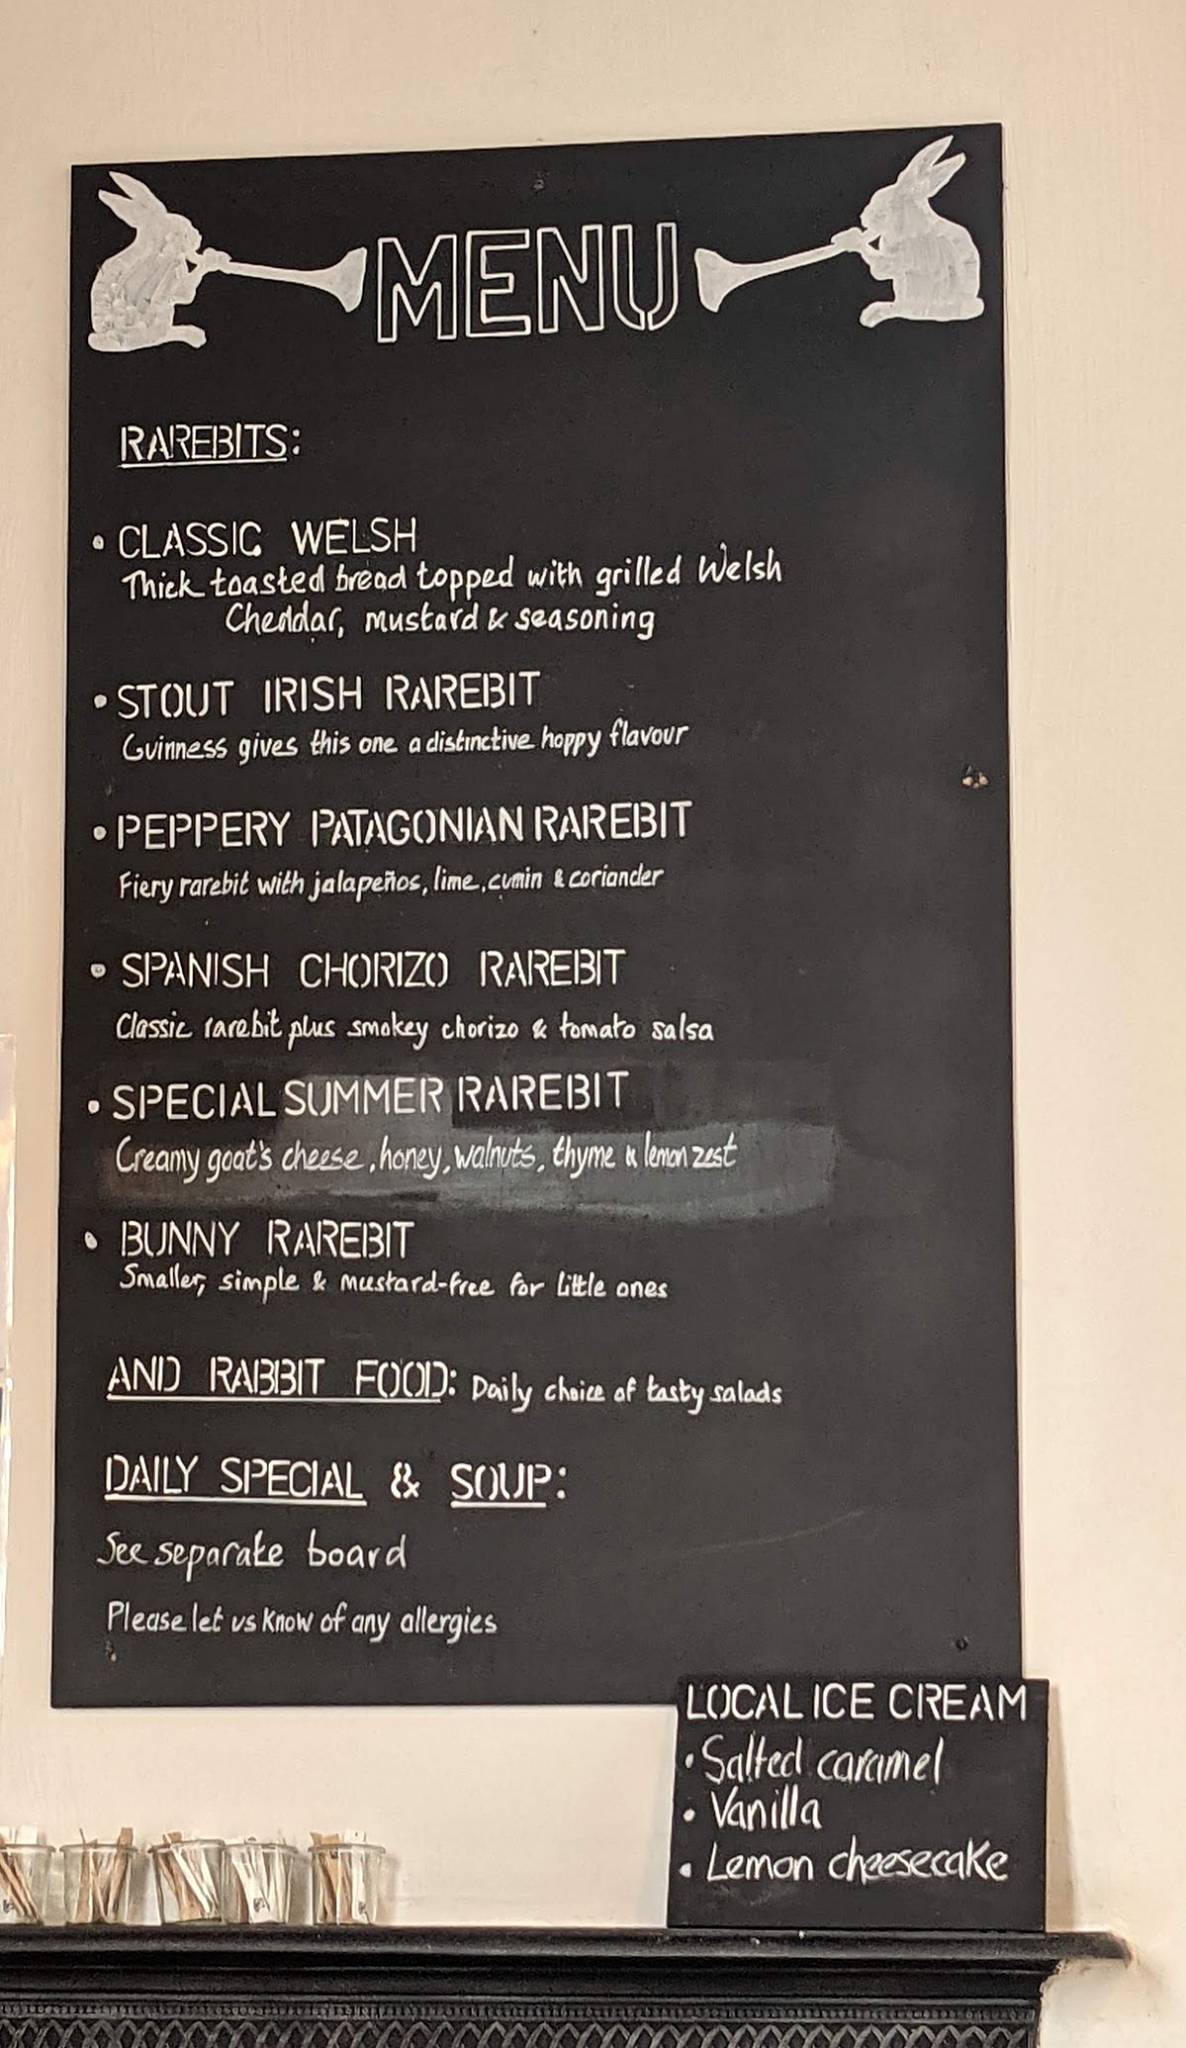 MENU
RAREBITS:
• CLASSIC WELSH
Thick toasted bread topped with grilled Welsh
Cheddar, mustard & seasoning
• STOUT IRISH RAREBIT
Guinness gives this one a distinctive hoppy flavour
• PEPPERY PATAGONIAN RAREBIT
Fiery rarebit with jalapeños, lime, cumin & coriander
• SPANISH CHORIZO RAREBIT
Classic rarebit plus smokey chorizo & tomato salsa
• SPECIAL SUMMER RAREBIT
Creamy goat's cheese, honey, walnuts, thyme & lemon zest
• BUNNY RAREBIT
Smaller, simple & mustard-free for little ones
AND RABBIT FOOD: Daily choice of tasty salads
DAILY SPECIAL & SOUP:
See separate board
Please let us know of any allergies
LOCAL ICE CREAM
• Salted caramel
• Vanilla
• Lemon cheesecake